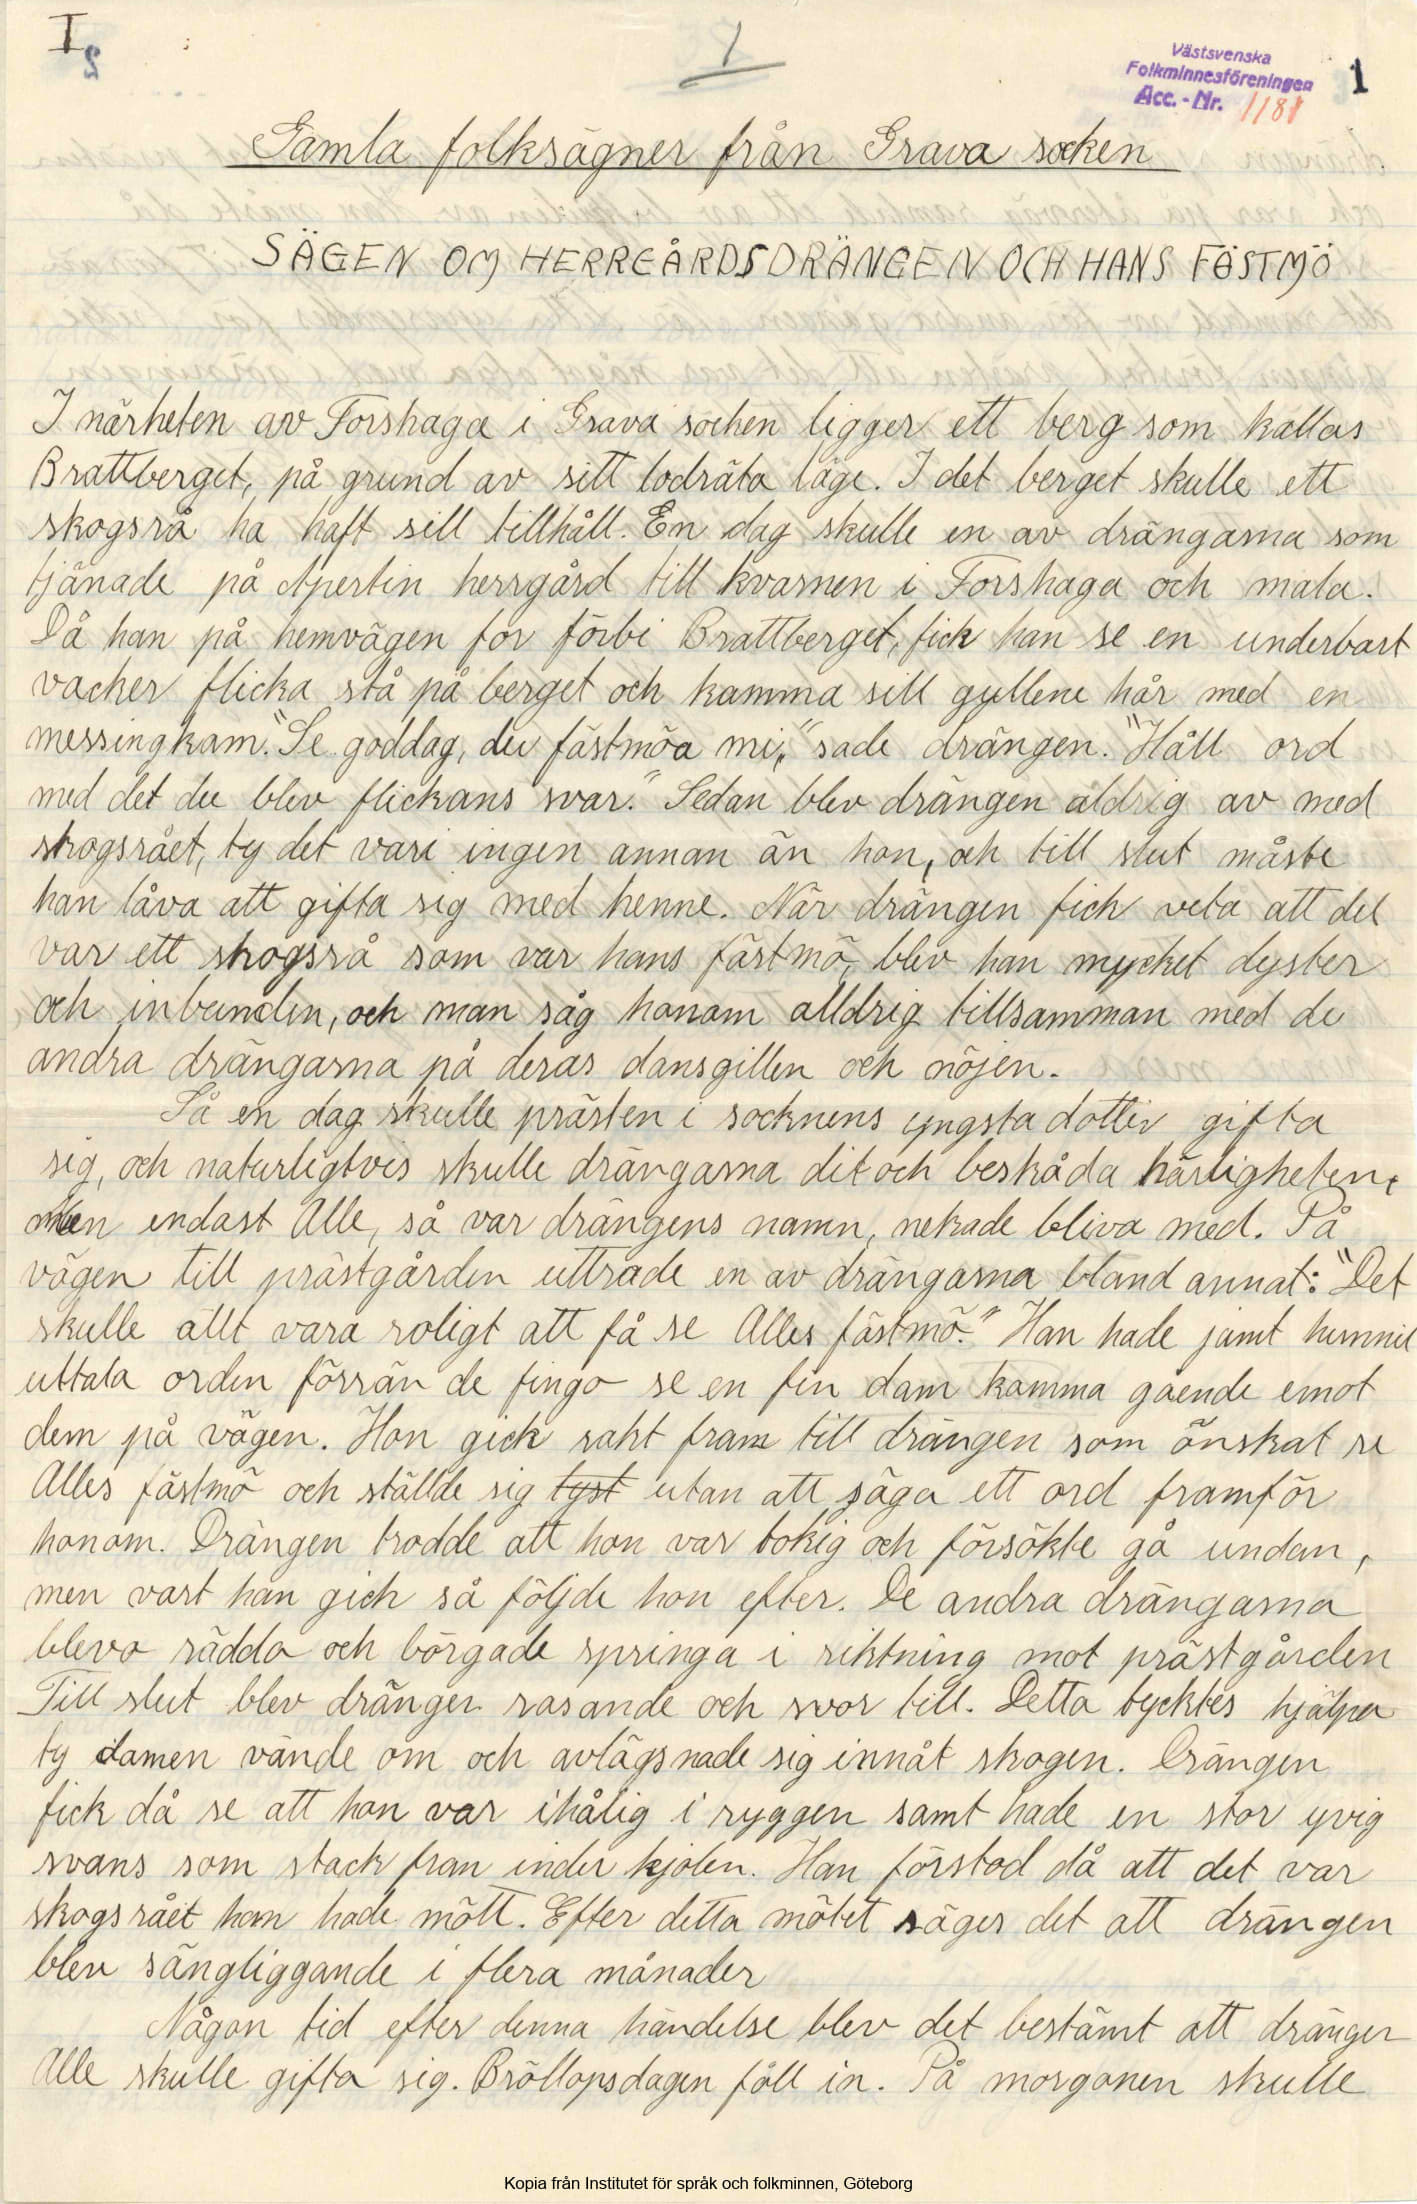 I
2
1
Västsvenska
Folkminnesföreningen
Acc.-Nr. 1181
1
Gamla folksägner från Grava socken
SÄGEN OM HERRGÅRDSDRÄNGEN OCH HANS FÄSTMÖ
I närheten av Forshaga i Grava socken ligger ett berg som kallas
Brattberget, på grund av sitt lodräta läge. I det berget skulle ett
skogsrå ha haft sitt tillhåll. En dag skulle en av drängarna som
tjänade på Apertin herrgård till kvarnen i Forshaga och mala.
Då han på hemvägen for förbi Brattberget, fick han se en underbart
vacker flicka stå på berget och kamma sitt gullene hår med en
messingkam. "Se goddag, du fästmöa mi," sade drängen. "Håll ord
med det du blev flickans svar." Sedan blev drängen aldrig av med
skogsrået, ty det var ingen annan än hon, och till slut måste
han låva att gifta sig med henne. När drängen fick veta att det
var ett skogsrå som var hans fästmö, blev han mycket dyster
och inbunden, och man såg honom alldrig tillsamman med de
andra drängarna på deras dansgillen och nöjen.
Så en dag skulle prästen i socknens yngsta dotter gifta
sig, och naturligtvis skulle drängarna dit och beskåda härligheten,
Men endast Alle, så var drängens namn, nekade bliva med. På
vägen till prästgården uttrade en av drängarna bland annat: "Det
skulle allt vara roligt att få se Alles fästmö." Han hade jämt hunnit
uttala orden förrän de fingo se en fin dam komma gående emot
dem på vägen. Hon gick rakt fram till drängen som önskat se
Alles fästmö och ställde sig tyst utan att säga ett ord framför
honom. Drängen trodde att hon var tokig och försökte gå undan,
men vart han gick så följde hon efter. De andra drängarna
blevo rädda och börgade springa i riktning mot prästgården
Till slut blev drängen rasande och svor till. Detta tycktes hjälpa
ty damen vände om och avlägsnade sig innåt skogen. Drängen
fick då se att hon var ihålig i ryggen samt hade en stor yvig
svans som stack fram under kjolen. Han förstod då att det var
skogsrået han hade mött. Efter detta mötet säges det att drängen
blev sängliggande i flera månader
Någon tid efter denna händelse blev det bestämt att drängen
Alle skulle gifta sig. Bröllopsdagen föll in. På morgonen skulle
Kopia från Institutet för språk och folkminnen, Göteborg